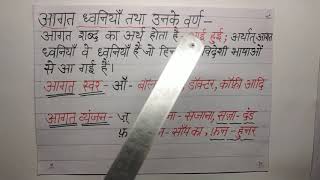 आगत ध्वनियाँ तथा उनके वर्ण -
आगत शब्द का अर्थ होता है - आई हुई ; अर्थात् आगत
ध्वनियाँ वे ध्वनियाँ हैं जो विदेशी भाषाओं
से आ गई हैं।
आगत स्वर - ऑ - डॉक्टर, कॉफ़ी आदि
आगत व्यंजन - ज़् - सजाना, सज़ा - दंड
फ़ - साँप का, फ़न - हुनर